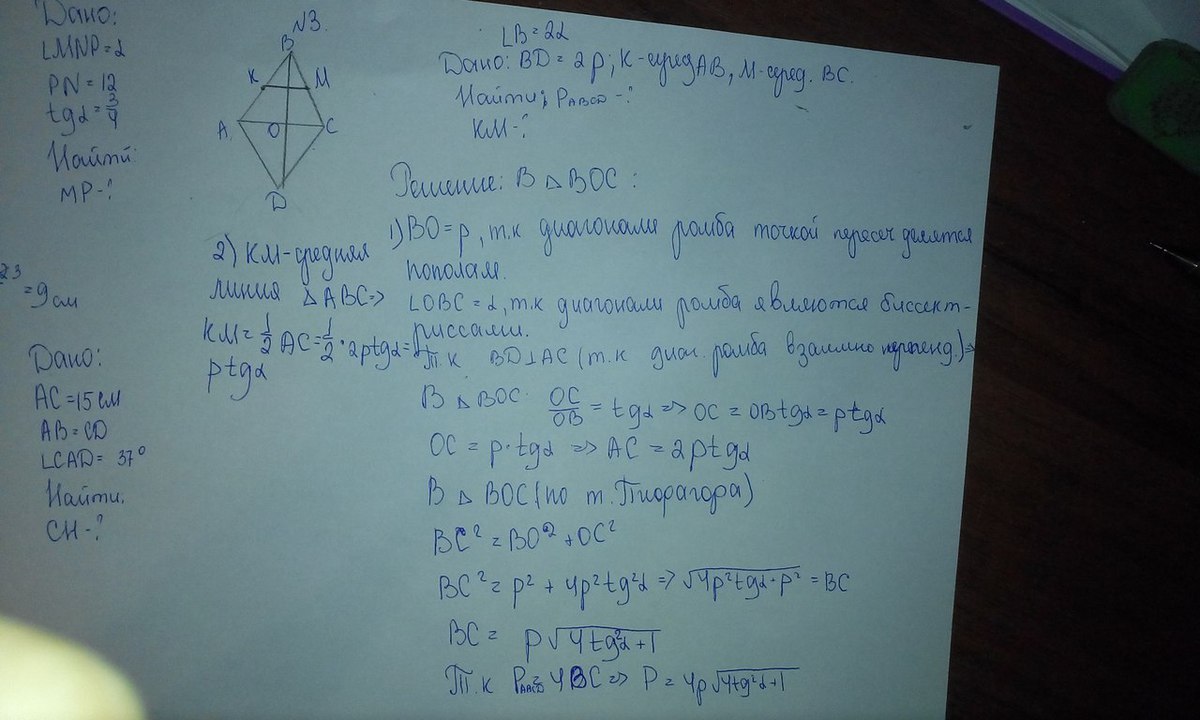 Дано:
∠MNP=α
PN=12
tgα=3/4
Найти:
MP-?
23
=9см
Дано:
AC=15см
AB=CD
∠CAD=37°
Найти:
CH-?
N3.
B
K M
A O C
D
∠B=2α
Дано: BD=2p; K-серед AB, M-серед. BC.
Найти: P ABCD-?
KM-?
Решение: В △BOC:
1) BO=p, т.к диагонали ромба точкой пересеч делятся
пополам.
∠OBC=α, т.к диагонали ромба являются биссект-
риссами.
Т.к BD⊥AC (т.к диаг. ромба взаимно перпенд.)=>
В △BOC OC/OB=tgα=>OC=OBtgα=ptgα
OC=p·tgα=>AC=2ptgα
В △BOC (по т. Пифрагора)
BC²=BO²+OC²
BC²=p²+4p²tg²α=>√4p²tgα·p²=BC
BC= p√4tg²α+1
Т.к P ABCD=4BC=>P=4p√4tg²α+1
2) KM-средняя
линия △ABC=>
KM=1/2 AC=1/2·2ptgα=
ptgα